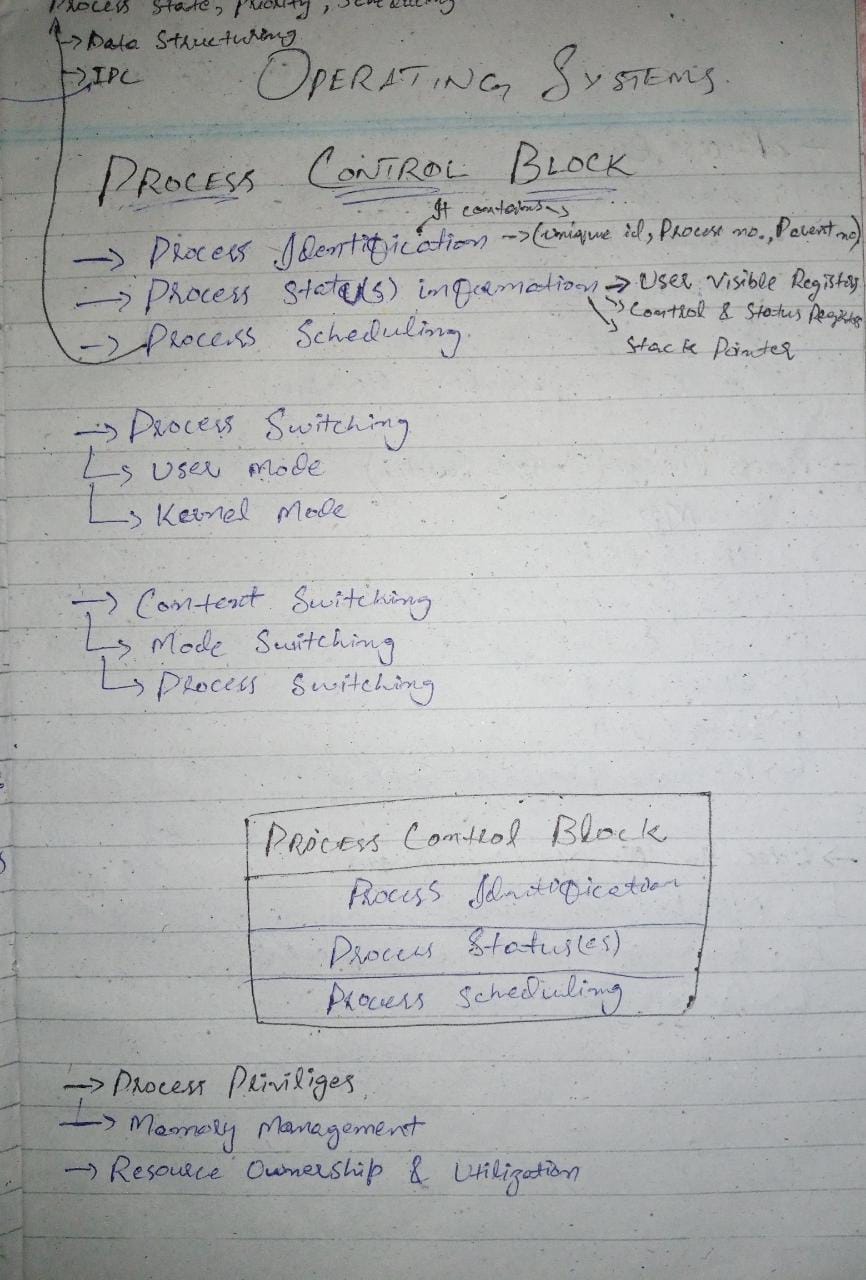 Process State, Priority, Scheduling
→ Data Structuring
→ IPC
OPERATING SYSTEMS
PROCESS CONTROL BLOCK
It contains
→ Process Identification → (unique id, Process no., Parent no)
→ Process State(s) information → User Visible Registers
→ Control & Status Registers
→ Process Scheduling
Stack Pointer
→ Process Switching
↳ User Mode
↳ Kernel Mode
→ Context Switching
↳ Mode Switching
↳ Process Switching
PROCESS Control Block
Process Identification
Process Status(es)
Process Scheduling
→ Process Priviliges
→ Memory Management
→ Resource Ownership & Utilization